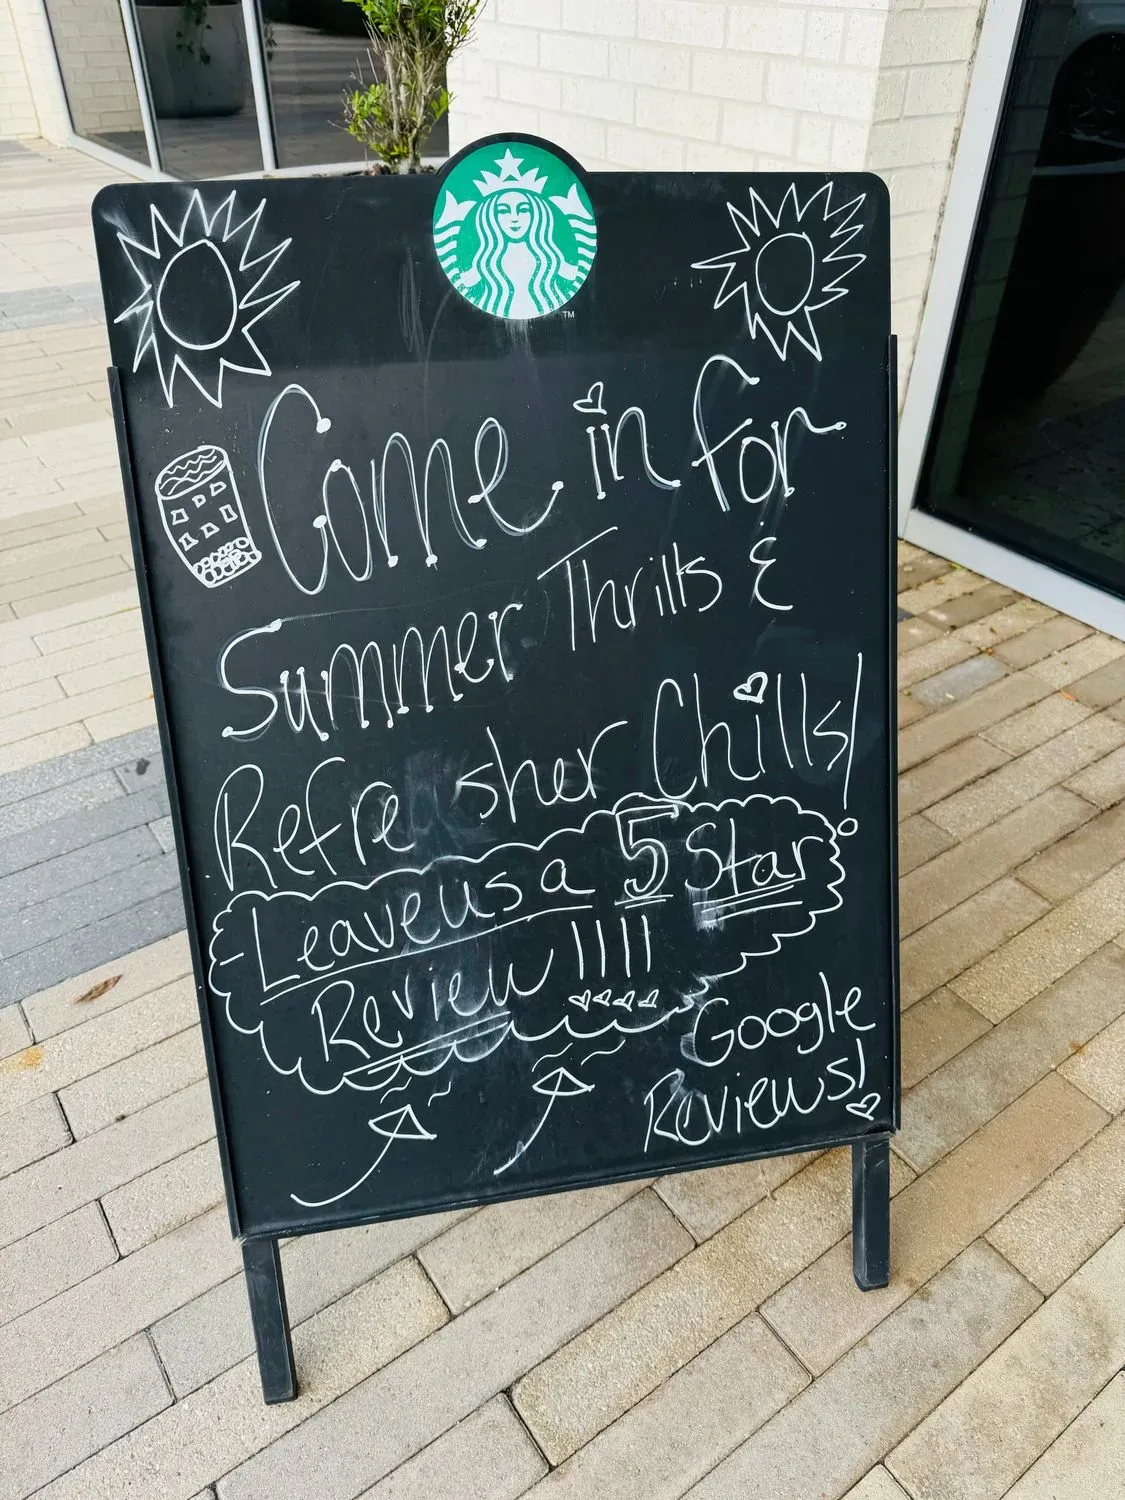 Come in for
Summer Thrills &
Refresher Chills!
Leave us a 5 Star
Review !!!!
Google
Reviews!
TM